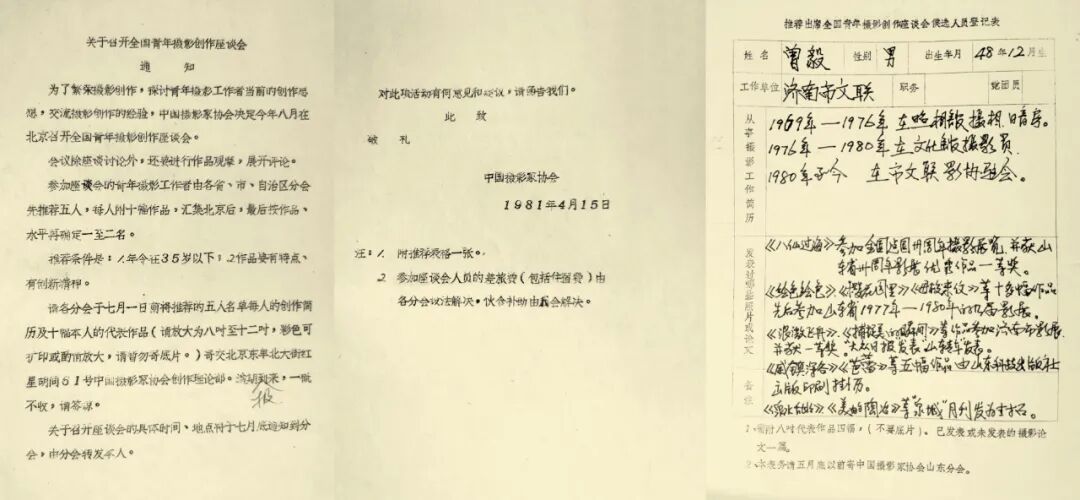 关于召开全国青年摄影创作座谈会
通知
为了繁荣摄影创作，探讨青年摄影工作者当前的创作思
想，交流摄影创作的经验，中国摄影家协会决定今年八月在
北京召开全国青年摄影创作座谈会。
会议除座谈讨论外，还要进行作品观摩，展开评论。
参加座谈会的青年摄影工作者由各省、市、自治区分会
先推荐五人，每人附十幅作品，汇集北京后，最后按作品、
水平再确定一至二名。
推荐条件是：1.年令在35岁以下；2.作品要有特点、
有创新精神。
请各分会于七月一日前将推荐的五人名单每人的创作简
历及十幅本人的代表作品（请放大为八吋至十二吋，彩色可
扩印或酌情放大，请暂勿寄底片。）寄交北京东单北大街红
星胡同61号中国摄影家协会创作理论部。逾期到来，一概
不收，请签谅。
关于召开座谈会的具体时间、地点将于七月底通知到分
会，由分会转发本人。
对此项活动有何意见和建议，请函告我们。
此致
敬礼
中国摄影家协会
1981年4月15日
注：1. 附推荐表格一张。
2. 参加座谈会人员的差旅费（包括住宿费）由
各分会设法解决，伙食补助由我会解决。
推荐出席全国青年摄影创作座谈会候选人员登记表
姓名 曾毅 性别 男 出生年月 48年12月生
工作单位 济南市文联 职务 党团员
从事摄影工作简历
1969年—1976年 在照相馆摄相、暗房。
1976年—1980年 在文化馆摄影员.
1980年至今 在市文联影协
发表过哪些照片或论文
《八仙过海》参加全国建国卅周年摄影展览,并获山
东省卅周年影展优秀作品一等奖。
《桃花园里》等十多幅作品
先后参加山东省1977年—1980年的四届影展.
等作品参加济南市影展
并获一等奖."大众日报"发表."山东青年"发表.
等五幅作品由山东科技出版社
出版印刷挂历.
等"泉城"月刊发为封底.
备注
1.须附八吋代表作品四幅，（不要底片）。已发表或未发表的摄影论
文一篇。
2.本表务请五月底以前寄中国摄影家协会山东分会。